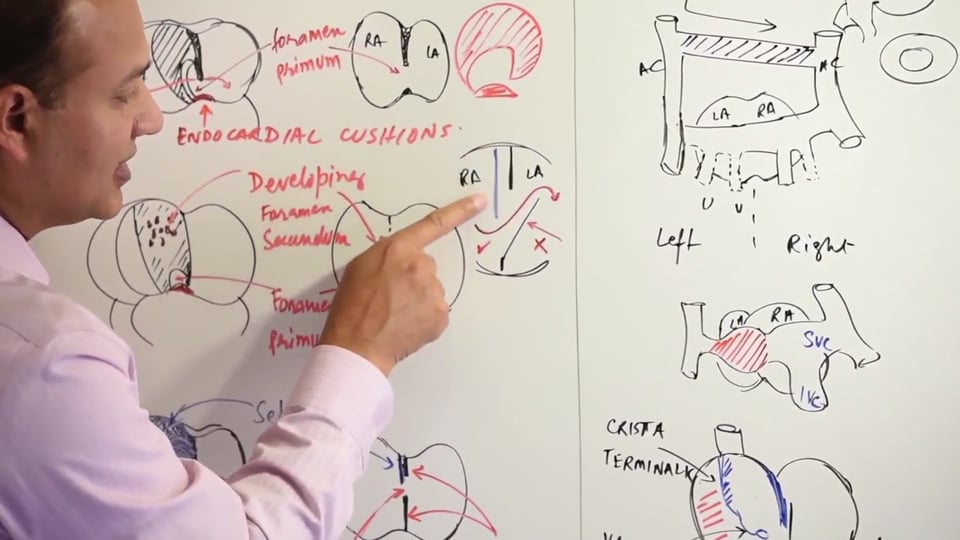 RA
LA
foramen
primum
ENDOCARDIAL CUSHIONS
RA
LA
Developing
Foramen
Secundum
AC
AC
LA
RA
U
U
Left
Right
LA
RA
SVC
IVC
CRISTA
TERMINALIS